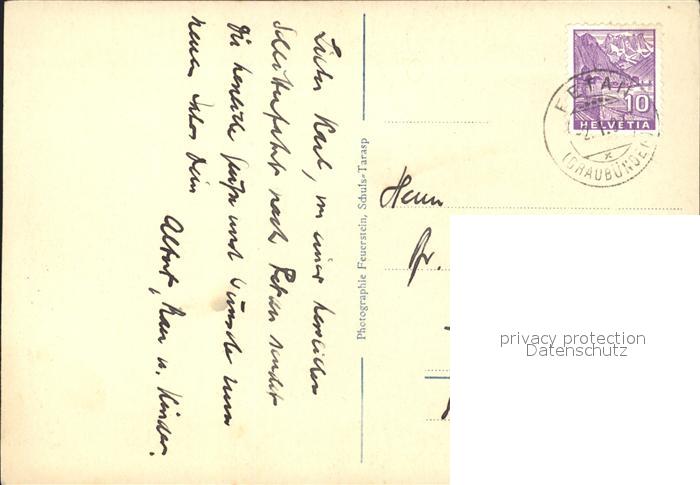 Lieber Karl, von einer herrlichen
Schlittenfahrt nach Fetan sendet
Dir herzliche Grüsse und Wünsche zum
neuen Jahr Dein
Albert, Frau u. Kinder.
Photographie Feuerstein, Schuls-Tarasp
10
HELVETIA
FETAN
(GRAUBÜNDEN)
Herrn
Dr.
privacy protection
Datenschutz